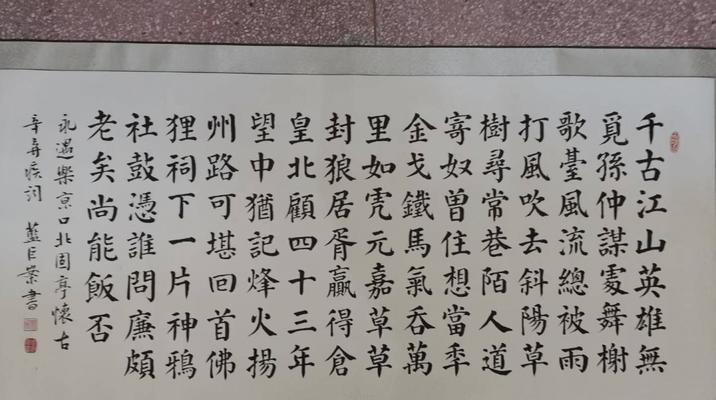 千古江山英雄無
覓孫仲謀處舞榭
歌臺風流總被雨
打風吹去斜陽草
樹尋常巷陌人道
寄奴曾住想當年
金戈鐵馬氣吞萬
里如虎元嘉草草
封狼居胥贏得倉
皇北顧四十三年
望中猶記烽火揚
州路可堪回首佛
狸祠下一片神鴉
社鼓憑誰問廉頗
老矣尚能飯否
永遇樂京口北固亭懷古
辛弃疾詞 藍巨書